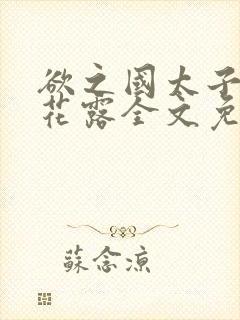 欲之國太子
花露全文免
蘇念涼